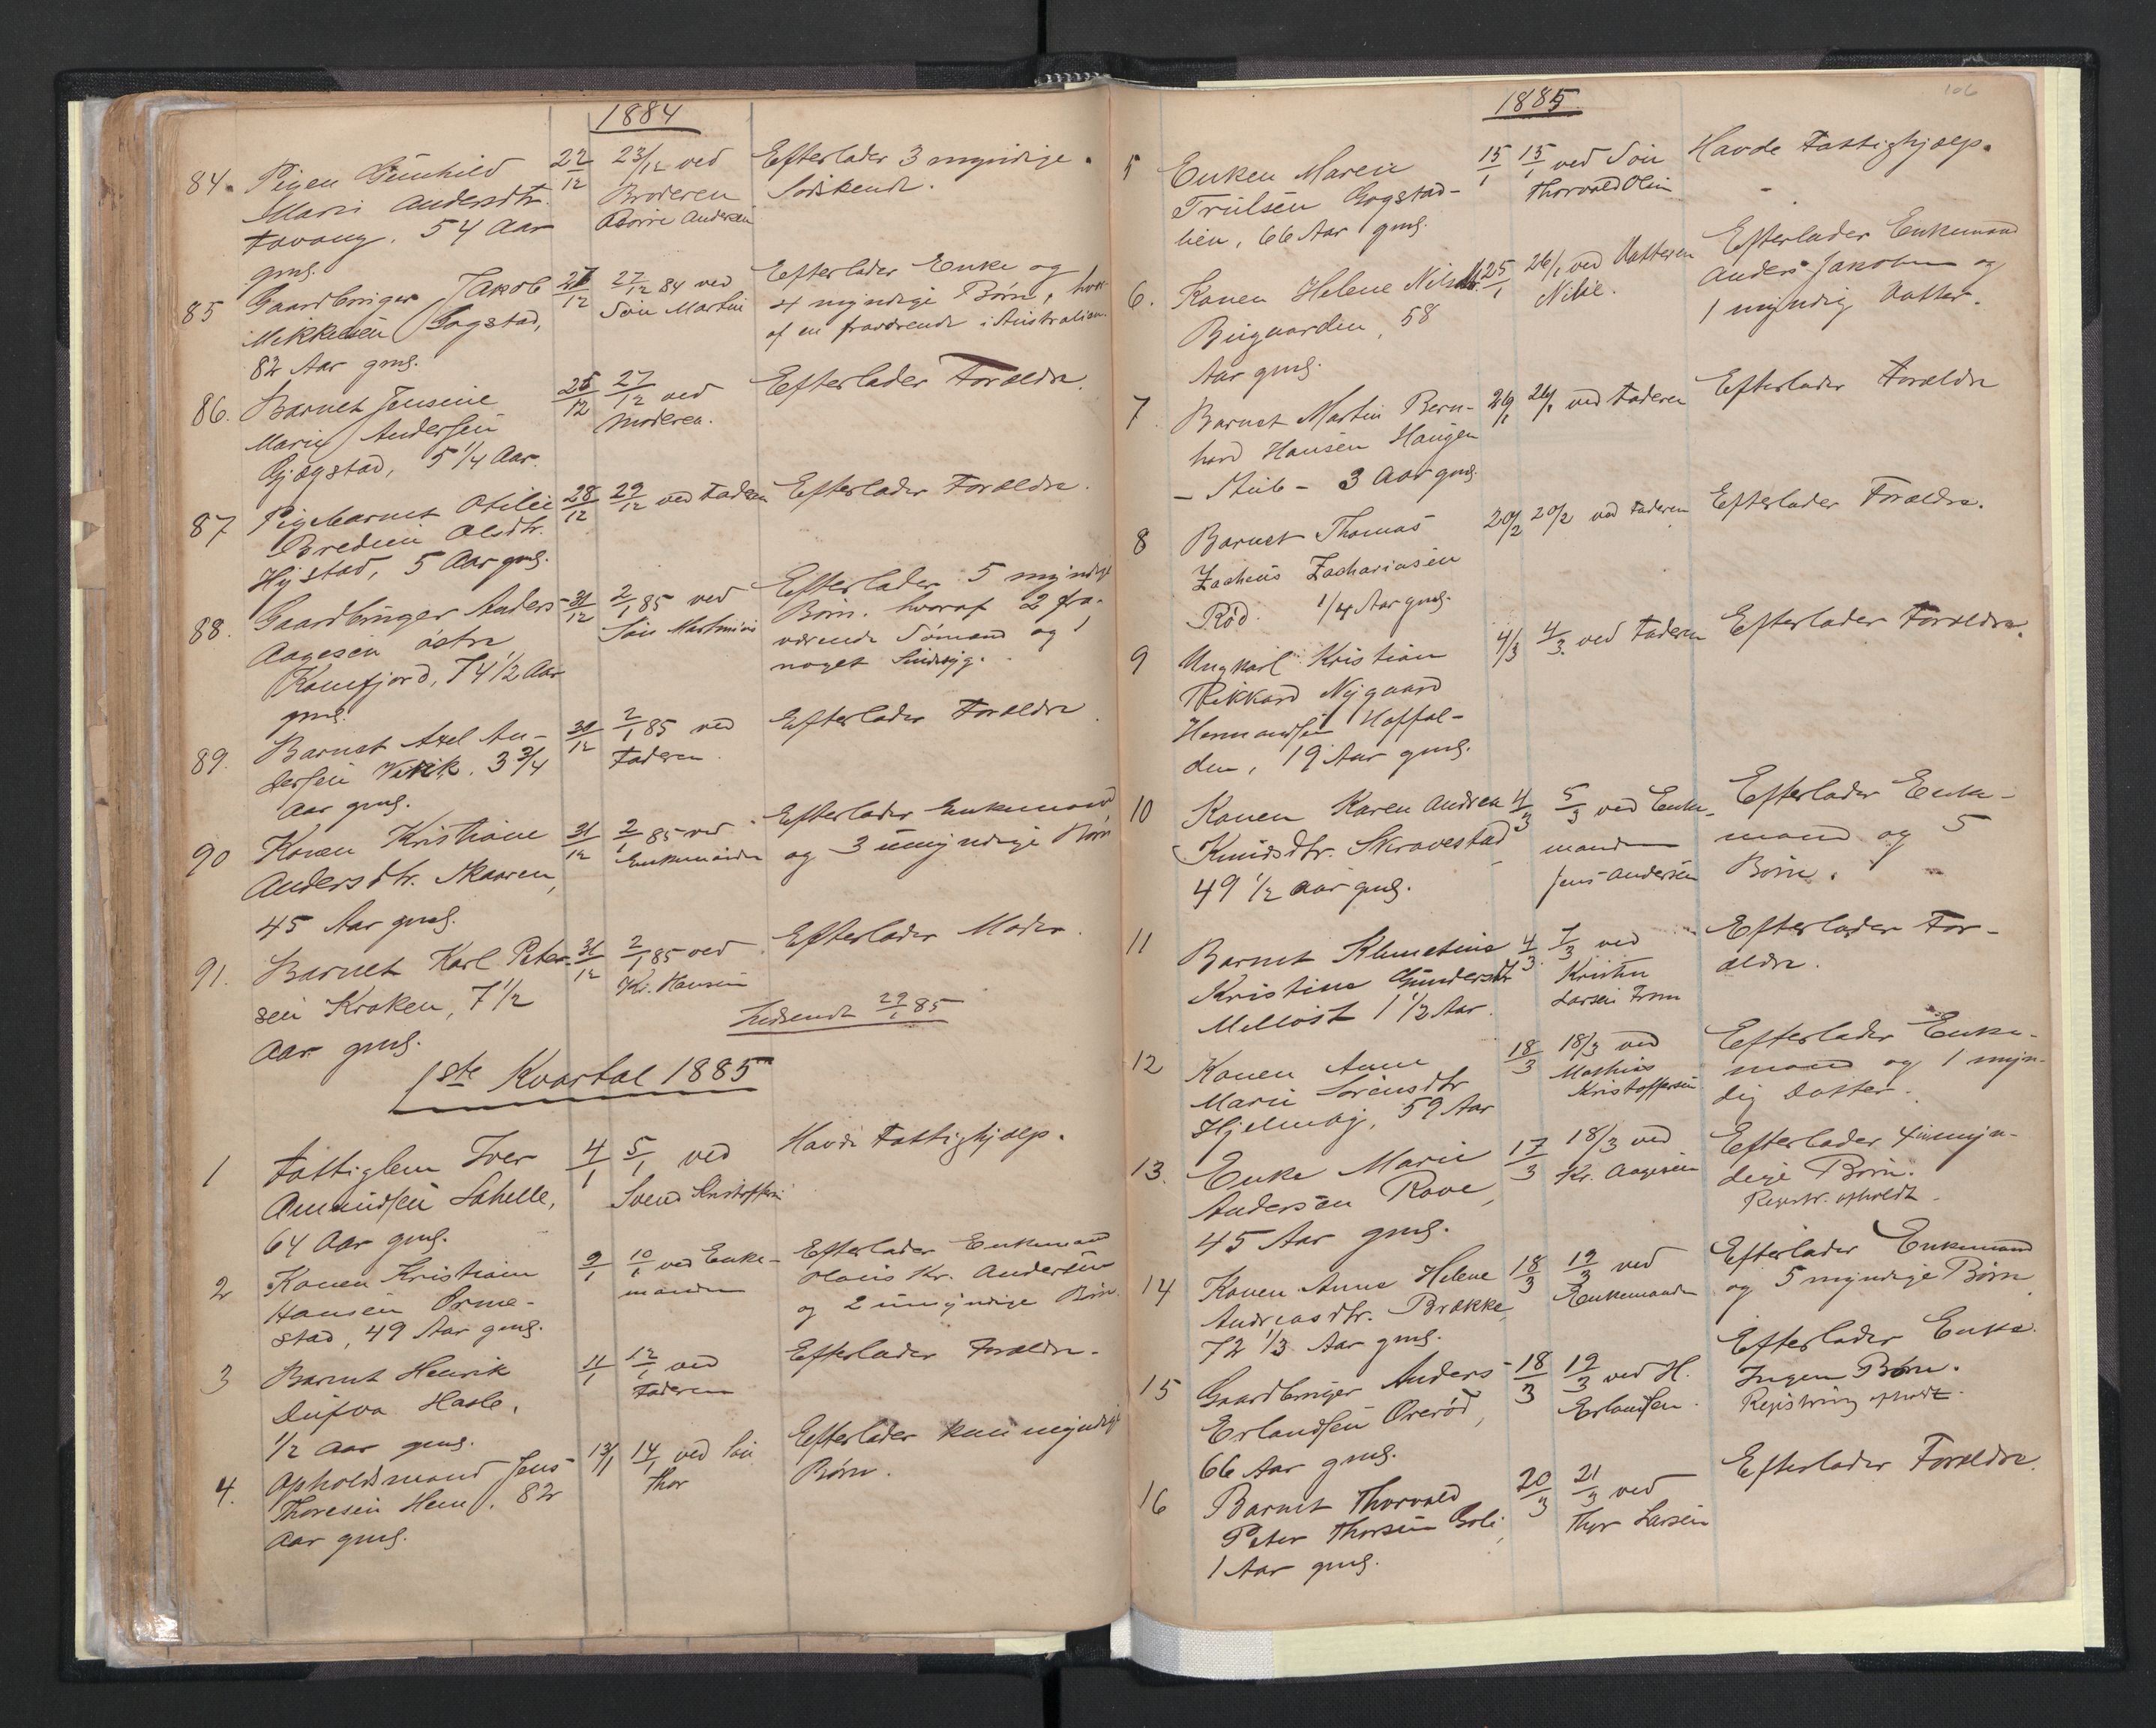 1884
84. Pigen Gunhild 22/12 23/12 ved Efterlader 3 myndige
Marie Andersdtr. Broderen Sødskende.
Tavong. 54 Aar Andersen
gml.
85 Gaardbruger Jakob 27/12 27/12 84 ved Efterlader Enke og
Mikkelsen Gogstad, Søn Martin 4 myndige Børn, hvor-
82 Aar gml. af en fraværende i Australien.
86. Barnet Jensine 25/12 27/12 ved Efterlader Forældre.
Marie Andersen Moderen.
Gjøgstad, 5 1/4 Aar.
87 Pigebarnet Otilie 28/12 29/12 ved Faderen Efterlader Forældre.
Bredine Olsdtr.
Hystad, 5 Aar gml.
88. Gaardbruger Anders 31/12 2/1 85 ved Efterlader 5 myndige
Aagesen østre Søn Martinius Børn. hvoraf 2 fra-
Kamfjord, 74 1/2 Aar værende Sømænd og 1
gml. noget Sindssyg.
89. Barnet Axel An- 30/12 2/1 85 ved Efterlader Forældre.
dersen Vivik. 3 3/4 Faderen.
Aar gml.
90 Konen Kristiane 31/12 2/1 85 ved Efterlader Enkemand
Andersdtr. Skaaren, Enkemanden og 3 umyndige Børn
45 Aar gml.
91. Barnet Karl Peter- 31/12 2/1 85 ved Efterlader Moder.
sen Kroken, 7 1/2 Kr. Hansen
Aar gml. Indsendt 29/1 85
1ste Kvartal 1885
1 Fattiglem Iver 4/1 5/1 ved Havde Fattighjælp.
Amundsen Lahelle, Svend Kristoffersen
64 Aar gml.
2 Konen Kristiane 9/1 10/1 ved Enke- Efterlader Enkemand
Hansen Orme- manden Hans Kr. Andersen
stad, 49 Aar gml. og 2 umyndige Børn.
3 Barnet Henrik 11/1 12/1 ved Efterlader Forældre.
Dufva Hasle, Faderen
1/2 Aar gml.
4. Opholdsmand Jens 13/1 14/1 ved Søn Efterlader kun myndige
Thoresen Hem, 82 Thor Børn.
Aar gml.
106
1885
5 Enken Maren 15/1 15/1 ved Søn Havde Fattighjælp.
Trulsen Gogstad- Thorvald Olsen
lien, 66 Aar gml.
6. Konen Helene Nilsdtr. 25/1 26/1 ved Datteren Efterlader Enkemand
Bugaarden, 58 Anders Jakobsen og
Aar gml. 1 myndig Datter.
7 Barnet Martin Bern- 26/1 26/1 ved Faderen Efterlader Forældre
hard Hansen Haugen
- Stub - 3 Aar gml.
8 Barnet Thomas 20/2 20/2 ved Faderen Efterlader Forældre.
Zacheus Zachariasen
Rød. 1/4 Aar gml.
9 Ungkarl Kristian 4/3 4/3. ved Faderen Efterlader Forældre.
Rikkard Nygaard
Hermandsen Haffal-
den, 19 Aar gml.
10 Konen Karen Andrea 4/3 5/3 ved Enke- Efterlader Enke-
Knudsdtr. Skravestad manden mand og 5
49 1/2 Aar gml. Jens Andersen Børn.
11 Barnet Klemetine 4/3. 7/3 ved Efterlader For-
Kristine Gundersdtr Kristen ældre.
Melløst 1 1/2 Aar. Larsen
12 Konen Anne 18/3 18/3 ved Efterlader Enke-
Marie Sørensdtr Mathias mand og 1 myn-
Hjelmøg, 59 Aar Kristoffersen dig Datter.
13. Enke Marie 17/3 18/3 ved Efterlader 4 umyn-
Andersen Rove, Kr. Aagesen dige Børn.
45 Aar gml. Registr. afholdt.
14 Konen Anne Helene 18/3 19/3 ved Efterlader Enkemand
Andreasdtr. Brække, Enkemanden og 5 myndige Børn
72 1/3 Aar gml.
15 Gaardbruger Anders 18/3 19/3 ved H. Efterlader Enke.
Erlandsen Orerød, Erlandsen. Ingen Børn.
66 Aar gml. Registrering afholdt.
16 Barnet Thorvald 20/3 21/3 ved Efterlader Forældre.
Peter Thorsen Thor Larsen
1 Aar gml.